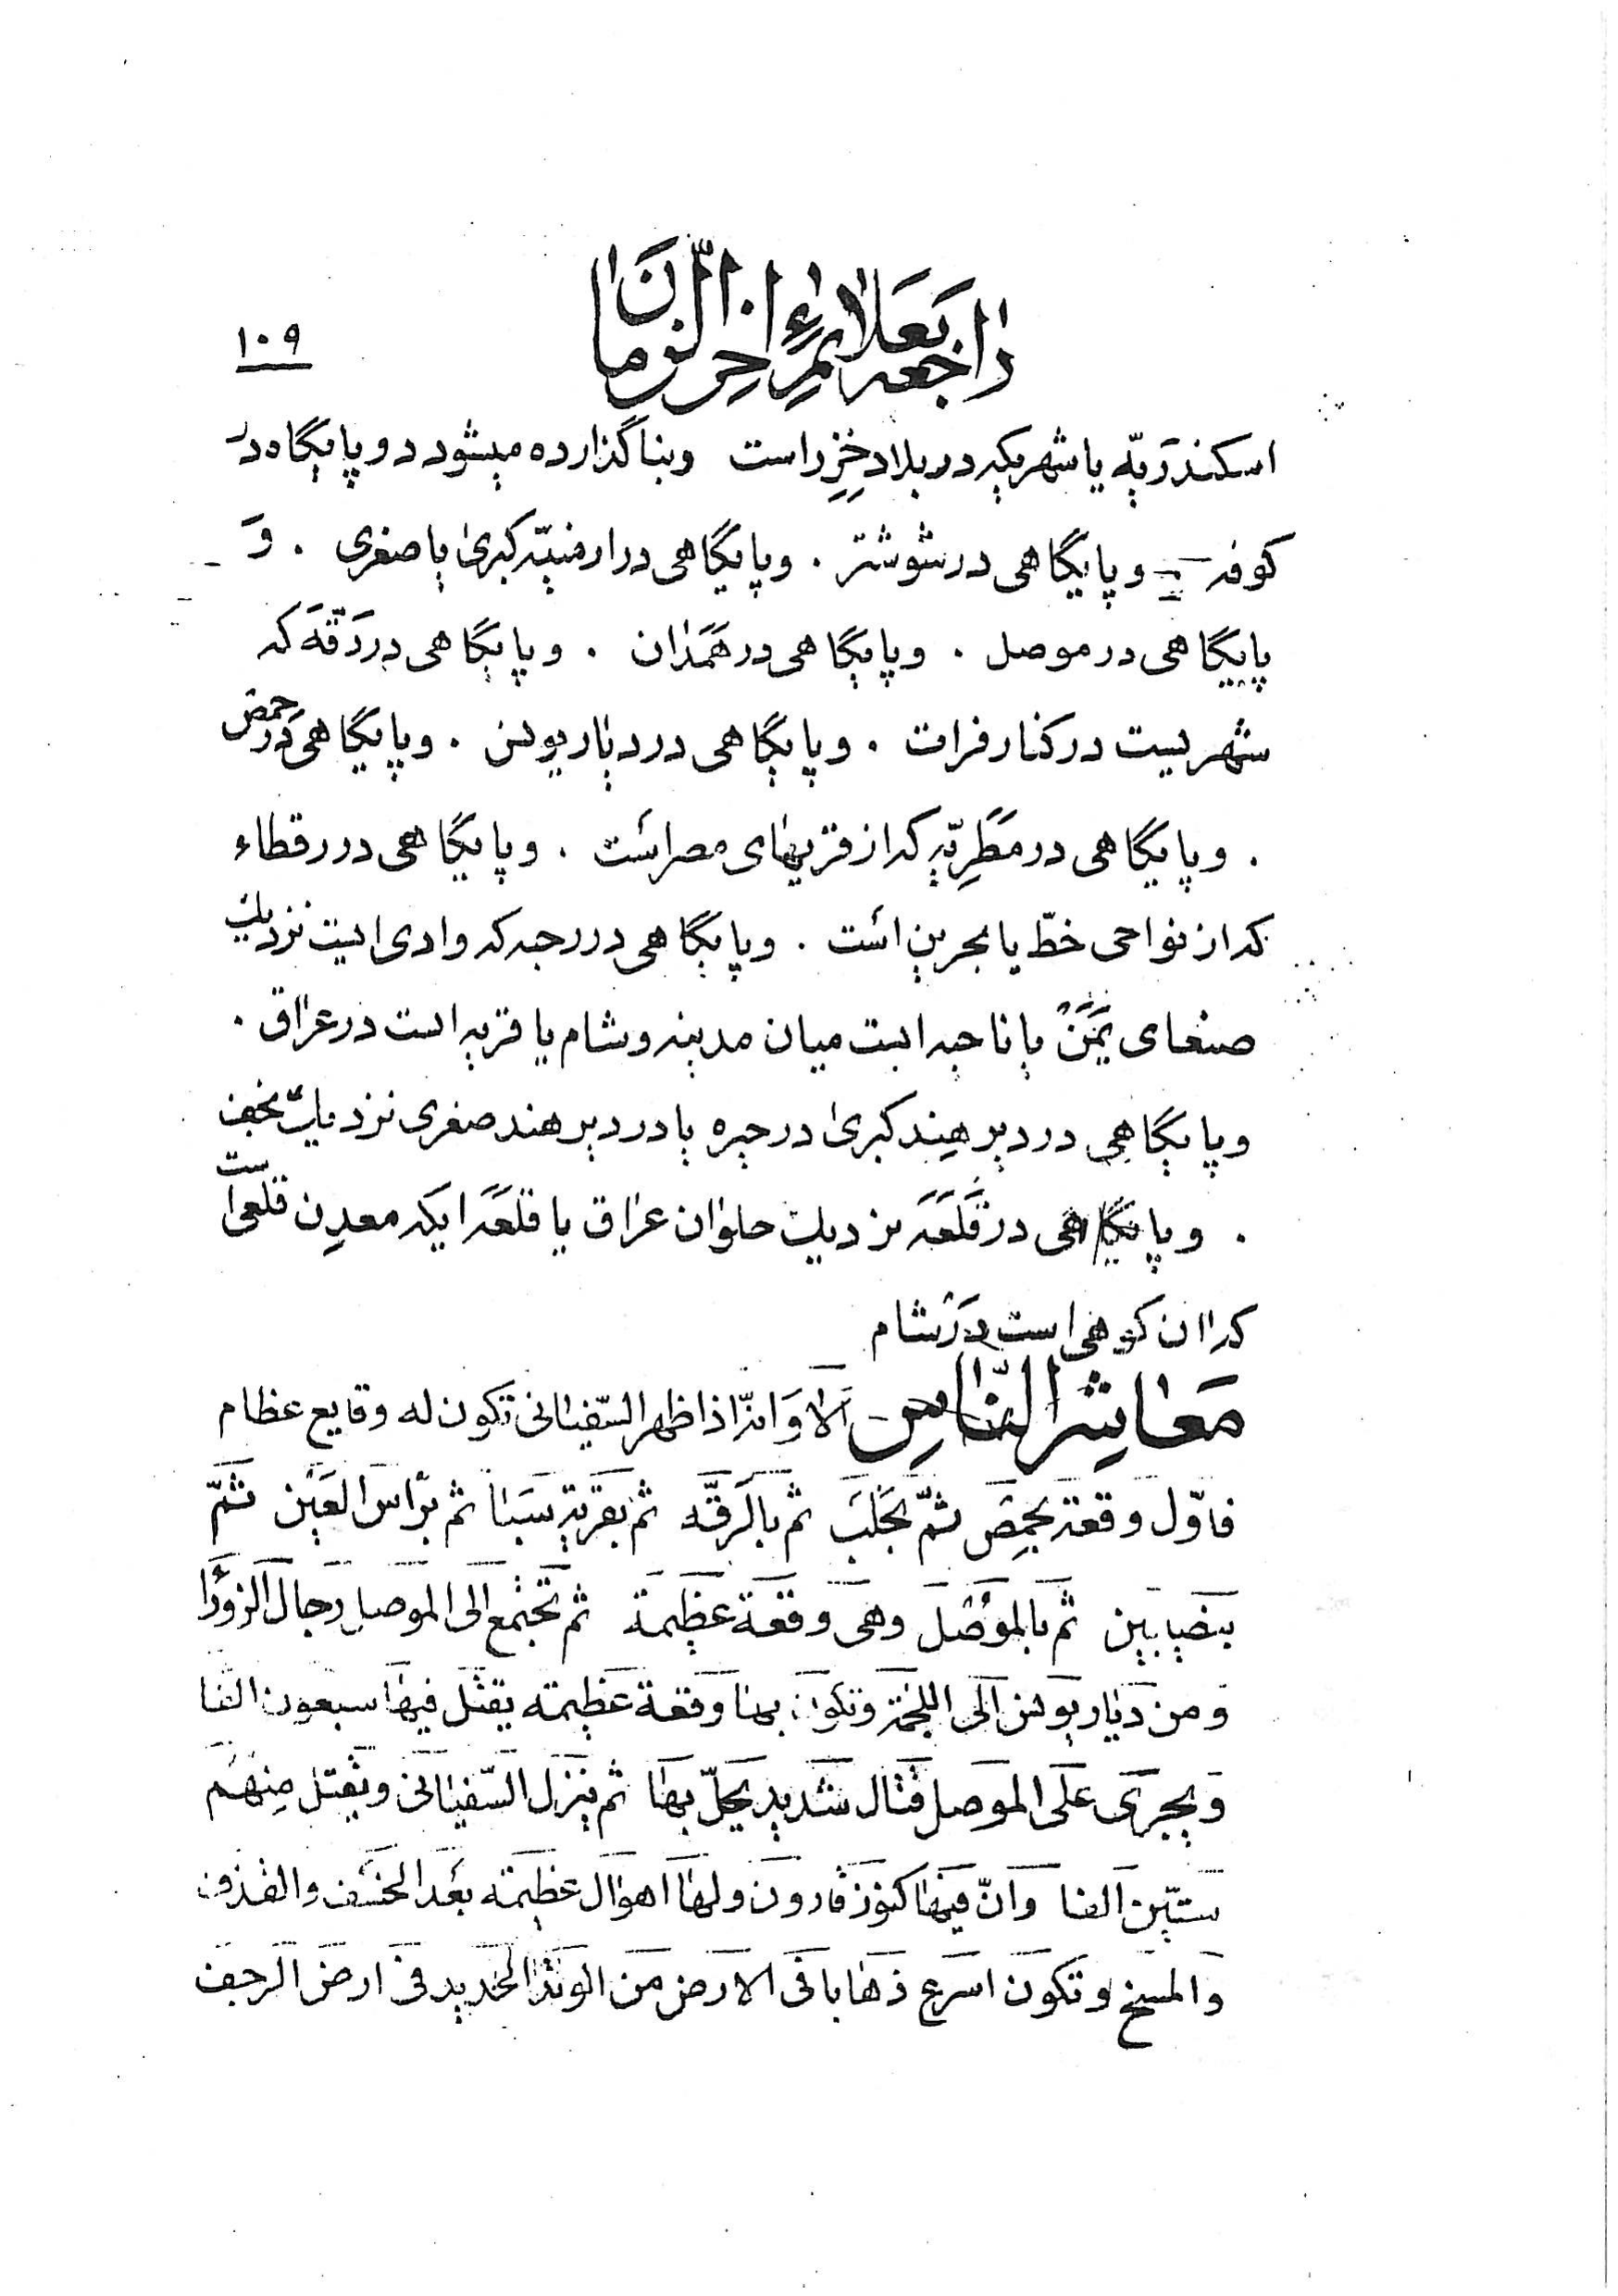 راجعه بعلائم اخر الزمان
۱۰۹
اسكندريّه يا شهريكه در بلاد خزر است وبنا گذارده ميشود دو پايگاه در
كوفه و پايگاهى در شوشتر . و پايگاهى در ارمنيّه كبرىٰ يا صغرى . وَ
پايگاهى در موصل . و پايگاهى در هَمَدٰان . و پايگاهى در رَقّه كه
شهريست در كنار فرات . و پايگاهى در ديار يونس . و پايگاهى در حمص
. و پايگاهى در مَطَرِيّه كه از قريهاى مصر است . و پايگاهى در رقطاء
كه از نواحى خطّ يا بحرين است . و پايگاهى در رحبه كه وادى ايست نزديك
صنعاى يَمَن يا ناحيه ايست ميان مدينه وشام يا قريه است در عراق .
و پايگاهى در دير هِند كبرىٰ در حيره يا در دير هند صغرى نزديك نجف
. و پايگاهى در قَلَعَه نزديك حلوٰان عراق يا قلعَه ايكه معدِن قلعى است
كه ان كوهى است در شام
مَعٰاشِرَ النّٰاسِ اَلا وَ انّه اذا ظهر السّفيٰانى تكون له وقايع عظام
فاوّل وقعة بحِمِصَ ثمّ بحَلَبَ ثم بالرَقّه ثم بقرية سَبَا ثم براس العَين ثمّ
بنصيبين ثم بالموصل وهى وقعة عظيمة ثم تجتمع الى الموصل رجال الزورٰا
و من ديٰار يونس الى اللجمة وتكون بها وقعة عظيمة يقتل فيها سبعون الفا
وَ يجرى على الموصل قتال شديد يحلّ بها ثم ينزل السّفيٰانى ويقتل مِنهُم
ستّين الفا وَ انّ فيها كنوز قٰارون ولها اهوال عظيمة بعد الخسف والقذف
وَ المسخ و تكون اسرع ذهٰابا فى الارض من الوتد الحديد فى ارض الرجف